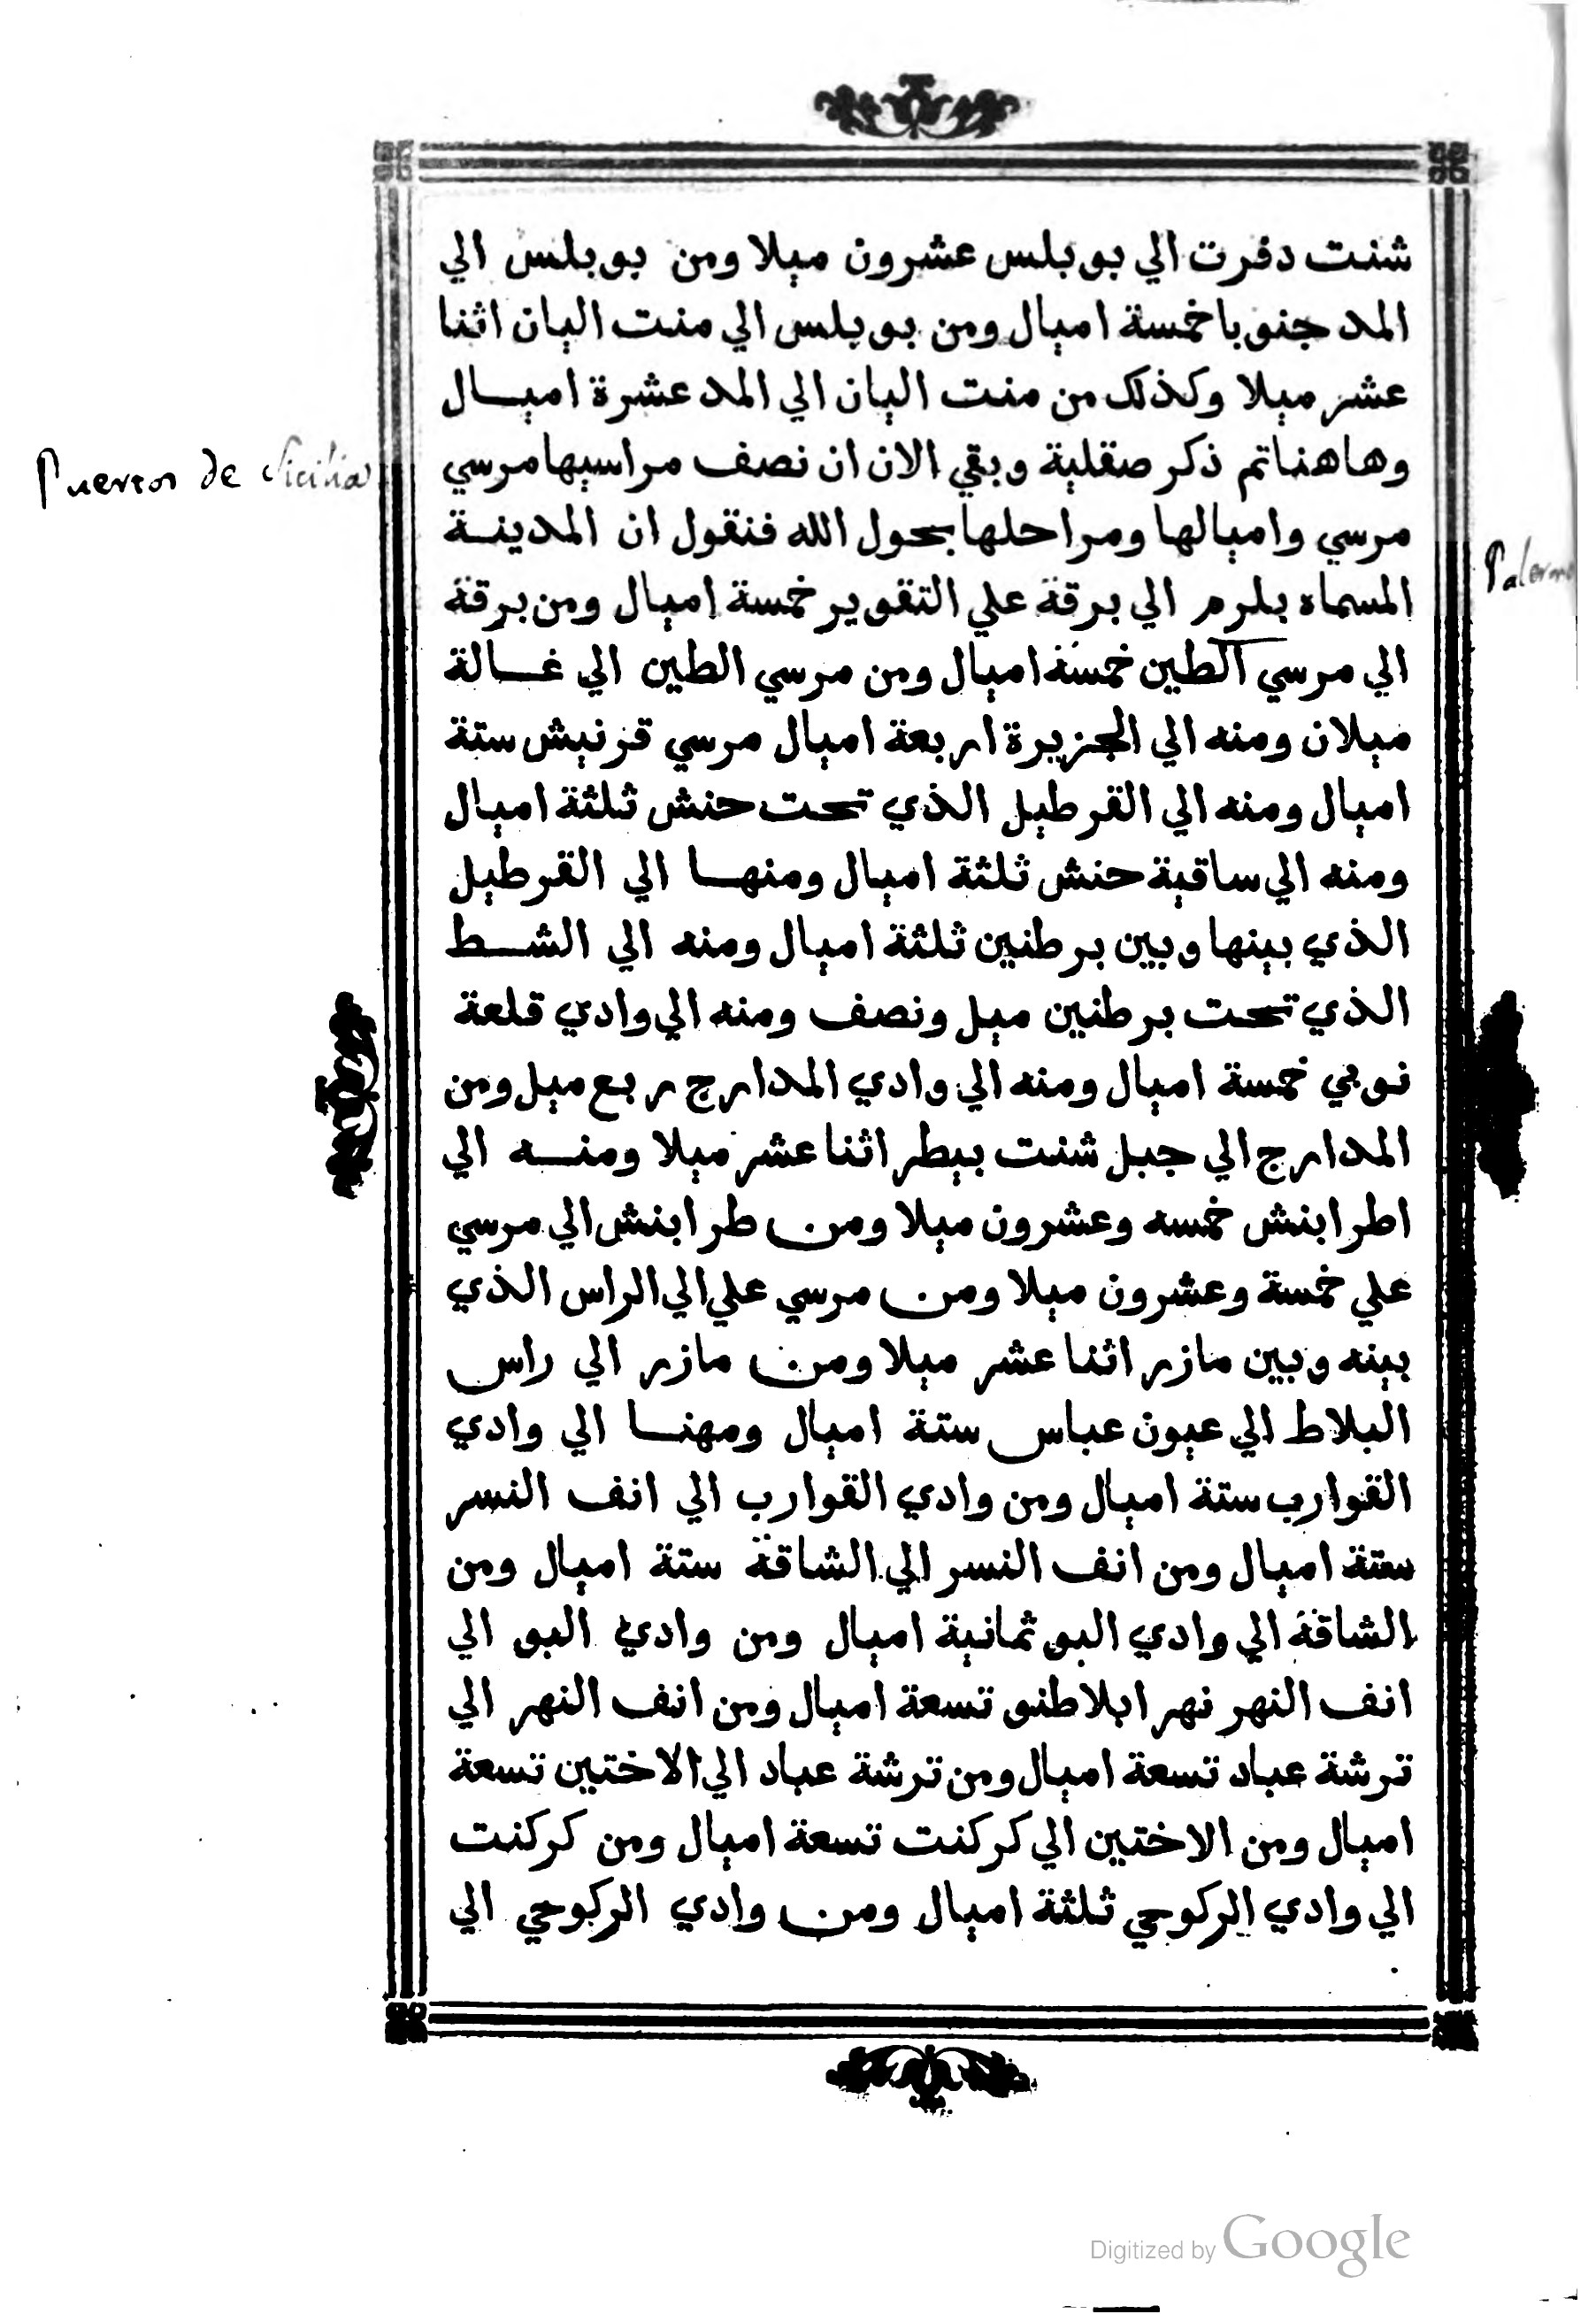 شنت دفرت الي بوبلس عشرون ميلا ومن بوبلس الي
المد جنوبا خمسة اميال ومن بوبلس الي منت اليان اثنا
عشر ميلا وكذلك من منت اليان الي المد عشرة اميال
Puertos de Sicilia
وهاهنا تم ذكر صقلية وبقي الان ان نصف مراسيها مرسي
مرسي واميالها ومراحلها بحول الله فنقول ان المدينة
Palermo
المسماه بلرم الي برقة علي التقوير خمسة اميال ومن برقة
الي مرسي الطين خمسة اميال ومن مرسي الطين الي غالة
ميلان ومنه الي الجزيرة اربعة اميال مرسي قرنيش ستة
اميال ومنه الي القرطيل الذي تحت حنش ثلثة اميال
ومنه الي ساقية حنش ثلثة اميال ومنها الي القرطيل
الذي بينها وبين برطنين ثلثة اميال ومنه الي الشط
الذي تحت برطنين ميل ونصف ومنه الي وادي قلعة
نوبي خمسة اميال ومنه الي وادي المدارج ربع ميل ومن
المدارج الي جبل شنت بيطر اثنا عشر ميلا ومنه الي
اطرابنش خمسه وعشرون ميلا ومن طرابنش الي مرسي
علي خمسة وعشرون ميلا ومن مرسي علي الي الراس الذي
بينه وبين مازر اثنا عشر ميلا ومن مازر الي راس
البلاط الي عيون عباس ستة اميال ومهنا الي وادي
القوارب ستة اميال ومن وادي القوارب الي انف النسر
ستة اميال ومن انف النسر الي الشاقة ستة اميال ومن
الشاقة الي وادي البو ثمانية اميال ومن وادي البو الي
انف النهر نهر ابلاطنو تسعة اميال ومن انف النهر الي
ترشة عباد تسعة اميال ومن ترشة عباد الي الاختين تسعة
اميال ومن الاختين الي كركنت تسعة اميال ومن كركنت
الي وادي الركوجي ثلثة اميال ومن وادي الركوجي الي
Digitized by Google